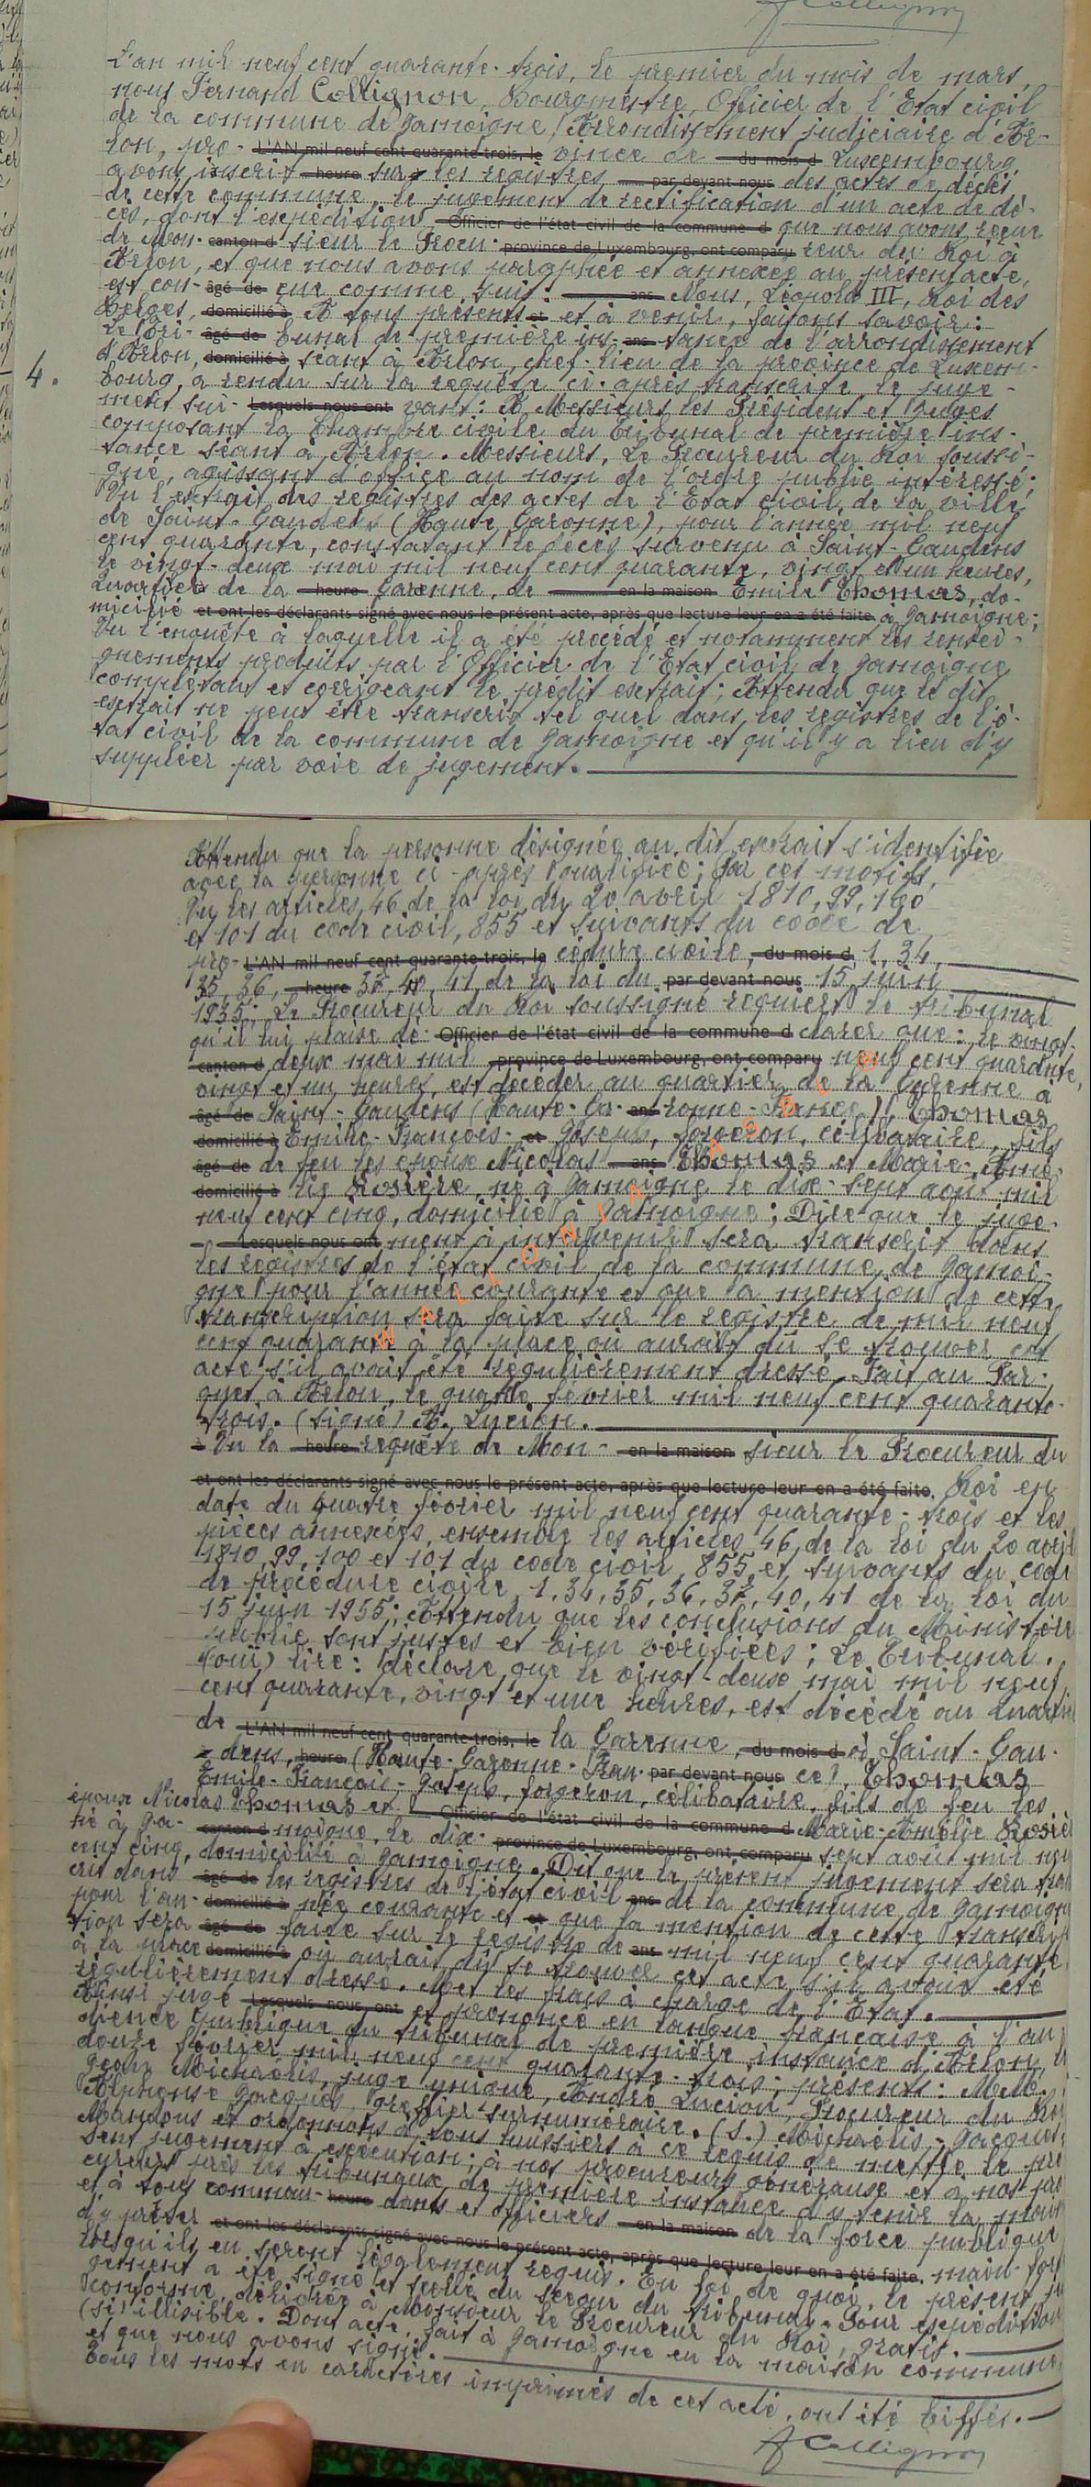 F Collignon
L'an mil neuf cent quarante-trois, le premier du mois de mars,
nous Fernand Collignon, Bourgmestre, Officier de l'Etat civil
de la commune de Jamoigne, Arrondissement judiciaire d'Ar-
lon, pro- L'AN mil neuf cent quarante-trois, le vince de du mois d Luxembourg,
avons inscrit heure sur les registres par devant nous des actes de décès
de cette commune, le jugement de rectification d'un acte de dé-
cès, dont l'expédition Officier de l'état civil de la commune d que nous avons reçue
de Mon- canton d sieur le Procu- province de Luxembourg, ont comparu reur du Roi à
Arlon, et que nous avons paraphée et annexée au présent acte,
est con- âgé de çue comme suit: ans Nous, Léopold III, Roi des
Belges, domicilié à A tous présents et et à venir, faisons savoir:
Le Tri- âgé de bunal de première ins- ans tance de l'arrondissement
d'Arlon, domicilié à séant à Arlon, chef-lieu de la province de Luxem-
4. bourg, a rendu sur la requête ci-après transcrite le juge-
ment sui- Lesquels nous ont vant: A Messieurs les Président et Juges
composant la Chambre civile du Tribunal de première ins-
tance séant à Arlon. Messieurs, Le Procureur du Roi soussi-
gné, agissant d'office au nom de l'ordre public intéressé;
Vu l'extrait des registres des actes de l'Etat civil de la ville
de Saint-Gaudens (Haute Garonne), pour l'année mil neuf
cent quarante, constatant le décès survenu à Saint-Gaudens
le vingt-deux mai mil neuf cent quarante, vingt et un heures,
Quartier de la heure Garenne, de en la maison Emile Thomas, do-
micilié et ont les déclarants signé avec nous le présent acte, après que lecture leur en a été faite à Jamoigne;
Vu l'enquête à laquelle il a été procédé et notamment les rensei-
gnements produits par l'Officier de l'Etat civil de Jamoigne
complétant et corrigeant le prédit extrait; Attendu que le dit
extrait ne peut être transcrit tel quel dans les registres de l'é-
tat civil de la commune de Jamoigne et qu'il y a lieu d'y
suppléer par voie de jugement.
Attendu que la personne désignée au dit extrait s'identifie
avec la personne ci-après qualifiée; Par ces motifs,
Vu les articles 46 de la loi du 20 avril 1810, 99, 100
et 101 du code civil, 855 et suivants du code de
pro- L'AN mil neuf cent quarante-trois, le cédure civile, du mois d 1, 34,
35, 36, heure 37, 40, 41 de la loi du par devant nous 15 juin
1935; Le Procureur du Roi soussigné requiert le tribunal
qu'il lui plaise de Officier de l'état civil de la commune d clarer que: le vingt-
canton d deux mai mil province de Luxembourg, ont comparu neuf cent quarante,
vingt et un heures, est décéder au quartier de la Garenne à
âgé de Saint-Gaudens (Haute-Ga- ans ronne-France), Thomas
domicilié à Emile-François- et Joseph, forgeron, célibataire, fils
âgé de de feu les époux Nicolas ans Thomas et Marie-Amé-
domicilié à lie Rosière né à Jamoigne le dix-sept août mil
neuf cent cinq, domicilié à Jamoigne; Dire que le juge-
Lesquels nous ont ment à intervenir sera transcrit dans
les registres de l'état civil de la commune de Jamoi-
gne pour l'année courante et que la mention de cette
transcription sera faite sur le registre de mil neuf
cent quarante à la place où aurait dû se trouver cet
acte s'il avait été régulièrement dressé. Fait au Par-
quet à Arlon, le quatre février mil neuf cent quarante-
trois. (signé) A. Lucion.
à Vu la heure requête de Mon- en la maison sieur le Procureur du
et ont les déclarants signé avec nous le présent acte, après que lecture leur en a été faite. Roi en
date du quatre février mil neuf cent quarante-trois et les
pièces annexées, ensemble les articles 46 de la loi du 20 avril
1810, 99, 100 et 101 du code civil, 855 et suivants du code
de procédure civile, 1, 34, 35, 36, 37, 40, 41 de la loi du
15 juin 1935; Attendu que les conclusions du Ministère
public sont justes et bien vérifiées; Le Tribunal,
(ouï) lire: déclare que le vingt-deux mai mil neuf
cent quarante, vingt et une heures, est décédé au Quartier
de L'AN mil neuf cent quarante-trois, le la Garenne, du mois d à Saint-Gau-
à dens, heure (Haute-Garonne-Fran- par devant nous ce), Thomas
Emile-François-Joseph, forgeron, célibataire, fils de feu les
époux Nicolas Thomas et Officier de l'état civil de la commune d Marie-Amélie Rosiè
né à Ja- canton d moigne, le dix- province de Luxembourg, ont comparu sept août mil neu
cent cinq, domicilié à Jamoigne. Dit que le présent jugement sera tran
crit dans âgé de les registres de l'état civil ans de la commune de Jamoign
pour l'an- domicilié à née courante et et que la mention de cette transcrip
tion sera âgé de faite sur le registre de ans mil neuf cent quarante,
à la place domicilié à où aurait dû se trouver cet acte s'il avait été
régulièrement dressé. Met les frais à charge de l'Etat.
Ainsi jugé Lesquels nous ont et prononcé en langue française à l'au
dience publique du tribunal de première instance d'Arlon,
douze février mil neuf cent quarante-trois; présents: M.M.
Michaëlis, juge unique, André Lucion, Procureur du Roi
Alphonse Jacques, greffier surnuméraire. (S.) Michaëlis-Jacques.
Mandons et ordonnons à tous huissiers à ce requis de mettre le pré
sent jugement à exécution; à nos procureurs généraux et à nos pro
cureurs près les tribunaux de première instance d'y tenir la main
et à tous comman- heure dants et officiers en la maison de la force publique
d'y prêter et ont les déclarants signé avec nous le présent acte, après que lecture leur en a été faite. main-for
lorsqu'ils en seront légalement requis. En foi de quoi, le présent ju
gement a été signé et scellé du sceau du tribunal. Pour expédition
conforme, délivrée à Monsieur le Procureur du Roi, gratis.
(S.) illisible. Dont acte, fait à Jamoigne en la maison commune,
et que nous avons signé.
Tous les mots en caractères imprimés de cet acte, ont été biffés.
F Collignon
WALLONIA